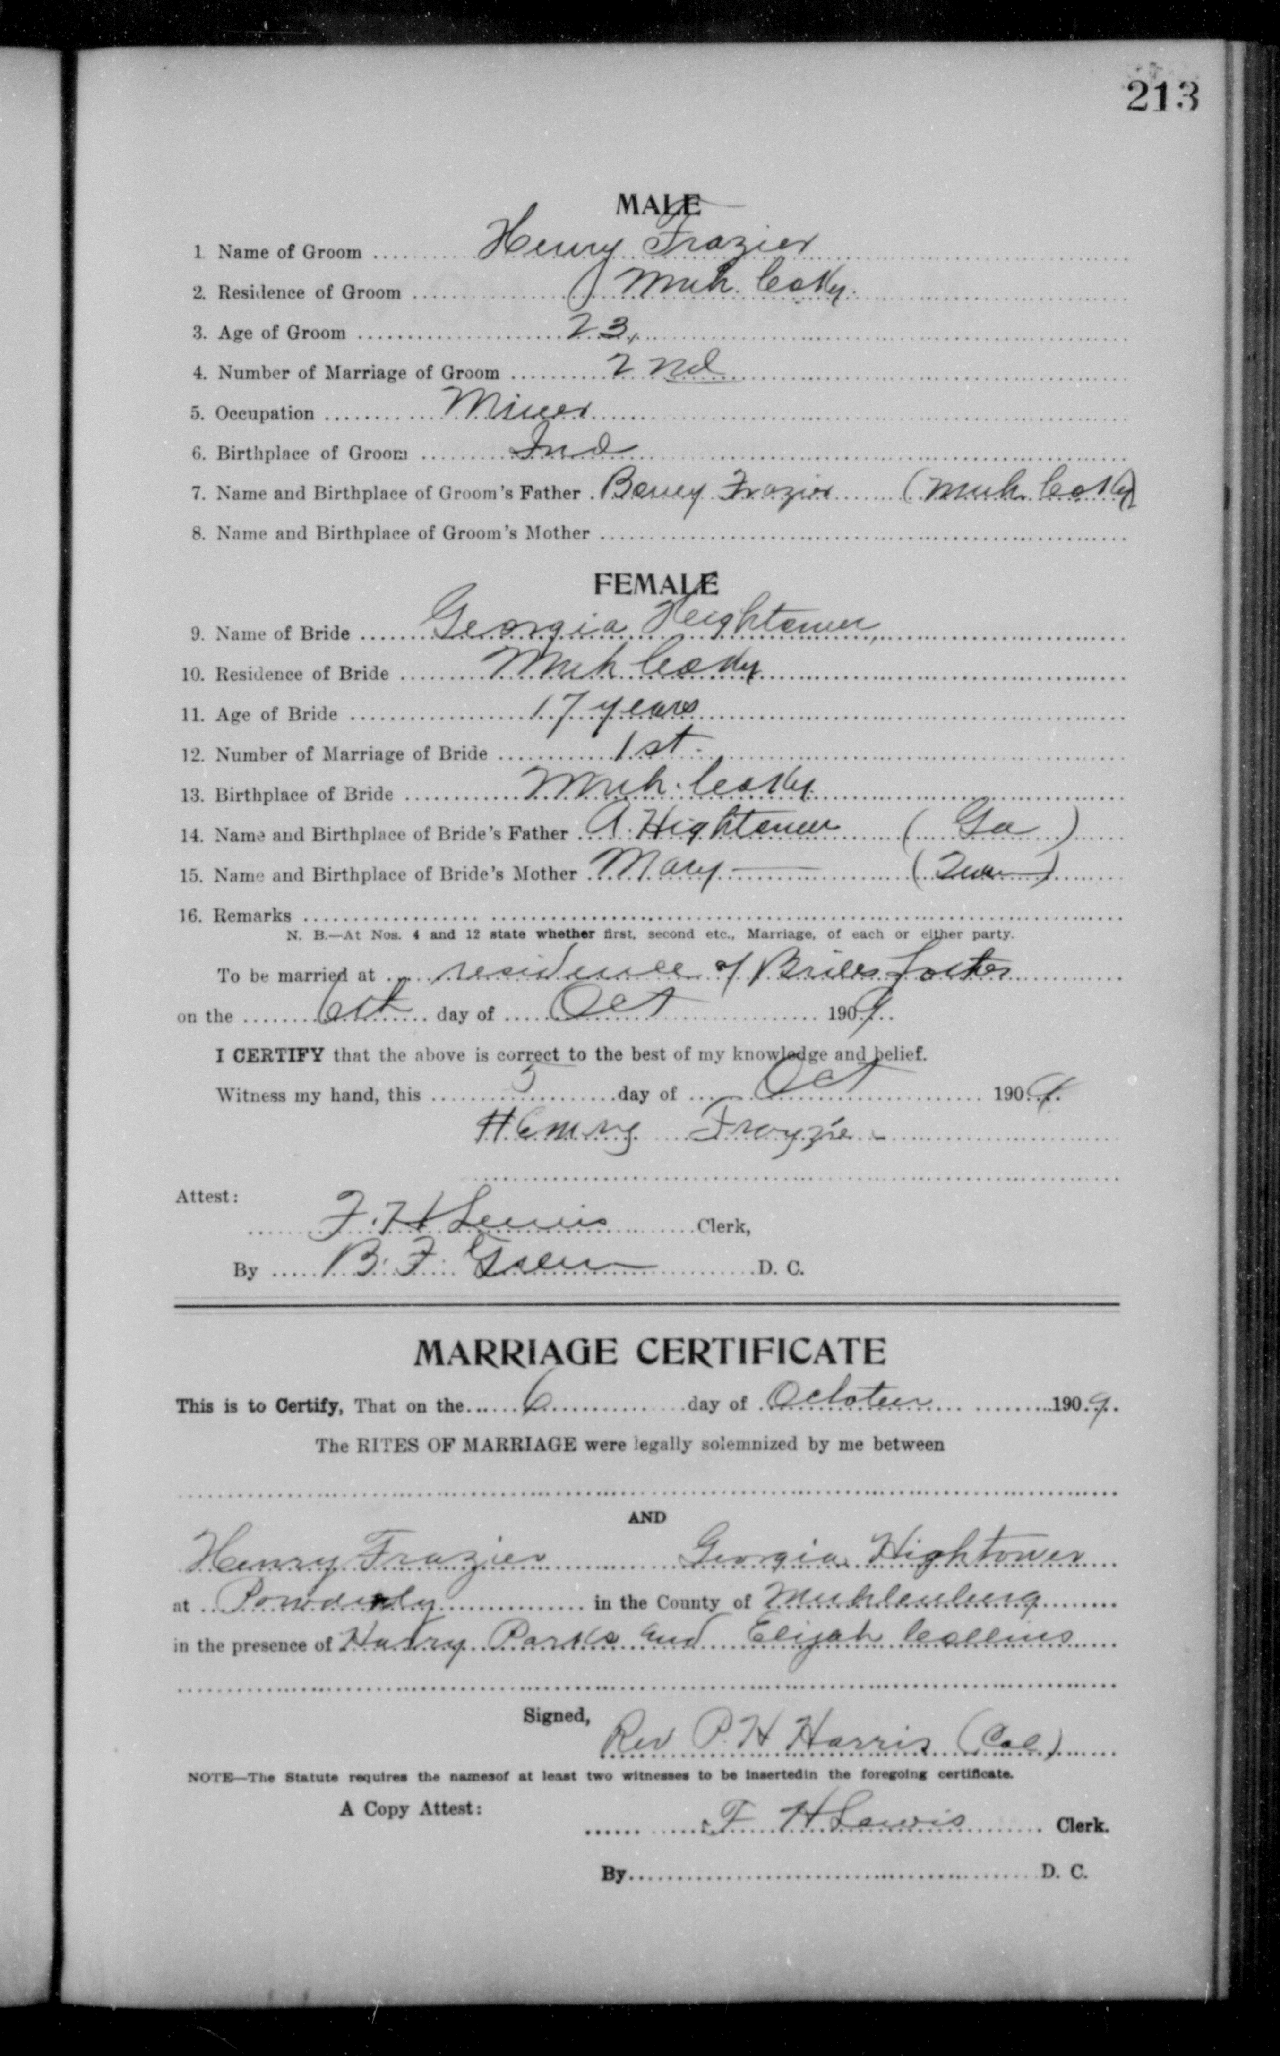 213
MALE
1 Name of Groom Henry Frazier
2. Residence of Groom Muh. Co Ky.
3. Age of Groom 23,
4. Number of Marriage of Groom 2nd
5. Occupation Miner
6. Birthplace of Groom Ind
7. Name and Birthplace of Groom's Father Berry Frazier (Muh. Co Ky)
8. Name and Birthplace of Groom's Mother
FEMALE
9. Name of Bride Georgia Heightower,
10. Residence of Bride Muh Co Ky
11. Age of Bride 17 years
12. Number of Marriage of Bride 1st.
13. Birthplace of Bride Muh. Co Ky
14. Name and Birthplace of Bride's Father A. Hightower (Ga)
15. Name and Birthplace of Bride's Mother Mary — (Tenn)
16. Remarks
N. B.—At Nos. 4 and 12 state whether first, second etc., Marriage, of each or either party.
To be married at residence of Brides
on the 6th day of Oct 1909.
I CERTIFY that the above is correct to the best of my knowledge and belief.
Witness my hand, this 5 day of Oct 1909.
Henry Frayzie
Attest:
F. H Lewis Clerk,
By B. F. Green D. C.
MARRIAGE CERTIFICATE
This is to Certify, That on the 6 day of October 1909.
The RITES OF MARRIAGE were legally solemnized by me between
AND
Henry Frazier Georgia Hightower
at Powderly in the County of Muhlenberg
in the presence of Harry Parks and Elijah Collins
Signed,
Rev P. H Harris (Col)
NOTE—The Statute requires the namesof at least two witnesses to be insertedin the foregoing certificate.
A Copy Attest:
F H Lewis Clerk.
By D. C.